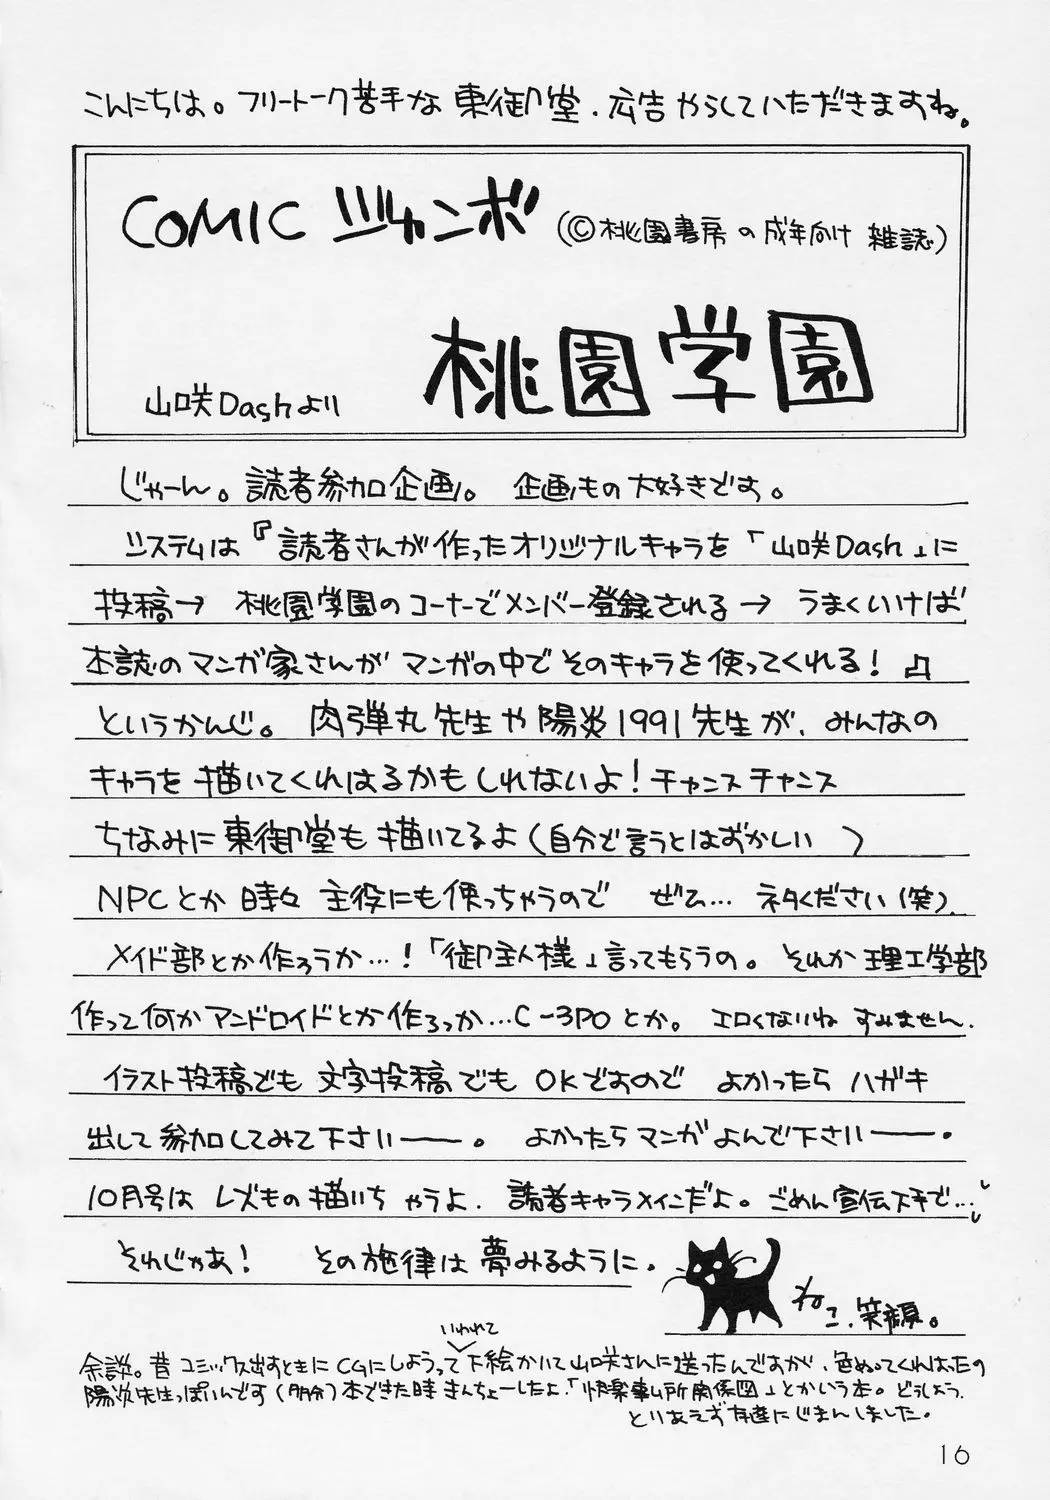 こんにちは。フリートーク苦手な 東御堂、広告やらしていただきますね。
COMIC ジャンボ (©桃園書房の成年向け 雑誌)
桃園学園
山咲Dashより
じゃーん。読者参加企画。 企画もの大好きです。
システムは『読者さんが作ったオリジナルキャラを「山咲Dash」に
投稿→ 桃園学園のコーナーでメンバー登録される→ うまくいけば
本誌のマンガ家さんが マンガの中でそのキャラを使ってくれる! 』
というかんじ。 肉弾丸先生や陽炎1991先生が、みんなの
キャラを描いてくれはるかもしれないよ!チャンスチャンス
ちなみに東御堂も描いてるよ(自分で言うとはずかしい )
NPCとか時々 主役にも使っちゃうので ぜひ… ネタください(笑)
メイド部とか作ろうか…!「御主人様」言ってもらうの。それか理工学部
作って何かアンドロイドとか作ろっか…C-3POとか。エロくないね すみません。
イラスト投稿でも文字投稿でも OKですので よかったら ハガキ
出して参加してみて下さいーー。 よかったらマンガよんで下さいーー。
10月号は レズもの描いちゃうよ。読者キャラメインだよ。ごめん宣伝下手で…
それじゃあ! その施律は夢みるように。
ねこ、笑顔。
いわれて
余談。昔 コミックス出すときにCGにしようって下絵かいて山咲さんに送ったんですが、色ぬってくれはったの
陽炎先生っぽいんです(多分)本できた時きんちょーしたよ。「快楽事ム所関係図」とかいう本。どうしよう。
とりあえず友達にじまんしました。
16